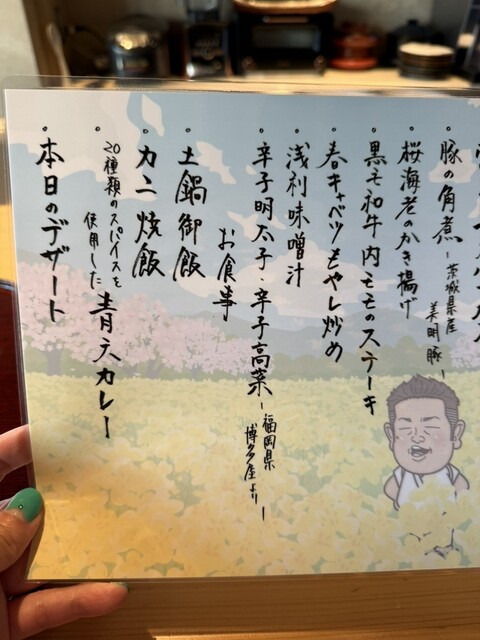 ・豚の角煮 -茨城県産
美明豚-
・桜海老のかき揚げ
・黒毛和牛内モモのステーキ
・春キャベツもやし炒め
・浅利味噌汁
・辛子明太子・辛子高菜 -福岡県
博多屋より-
お食事
・土鍋御飯
・カニ焼飯
・20種類のスパイスを
使用した青天カレー
・本日のデザート